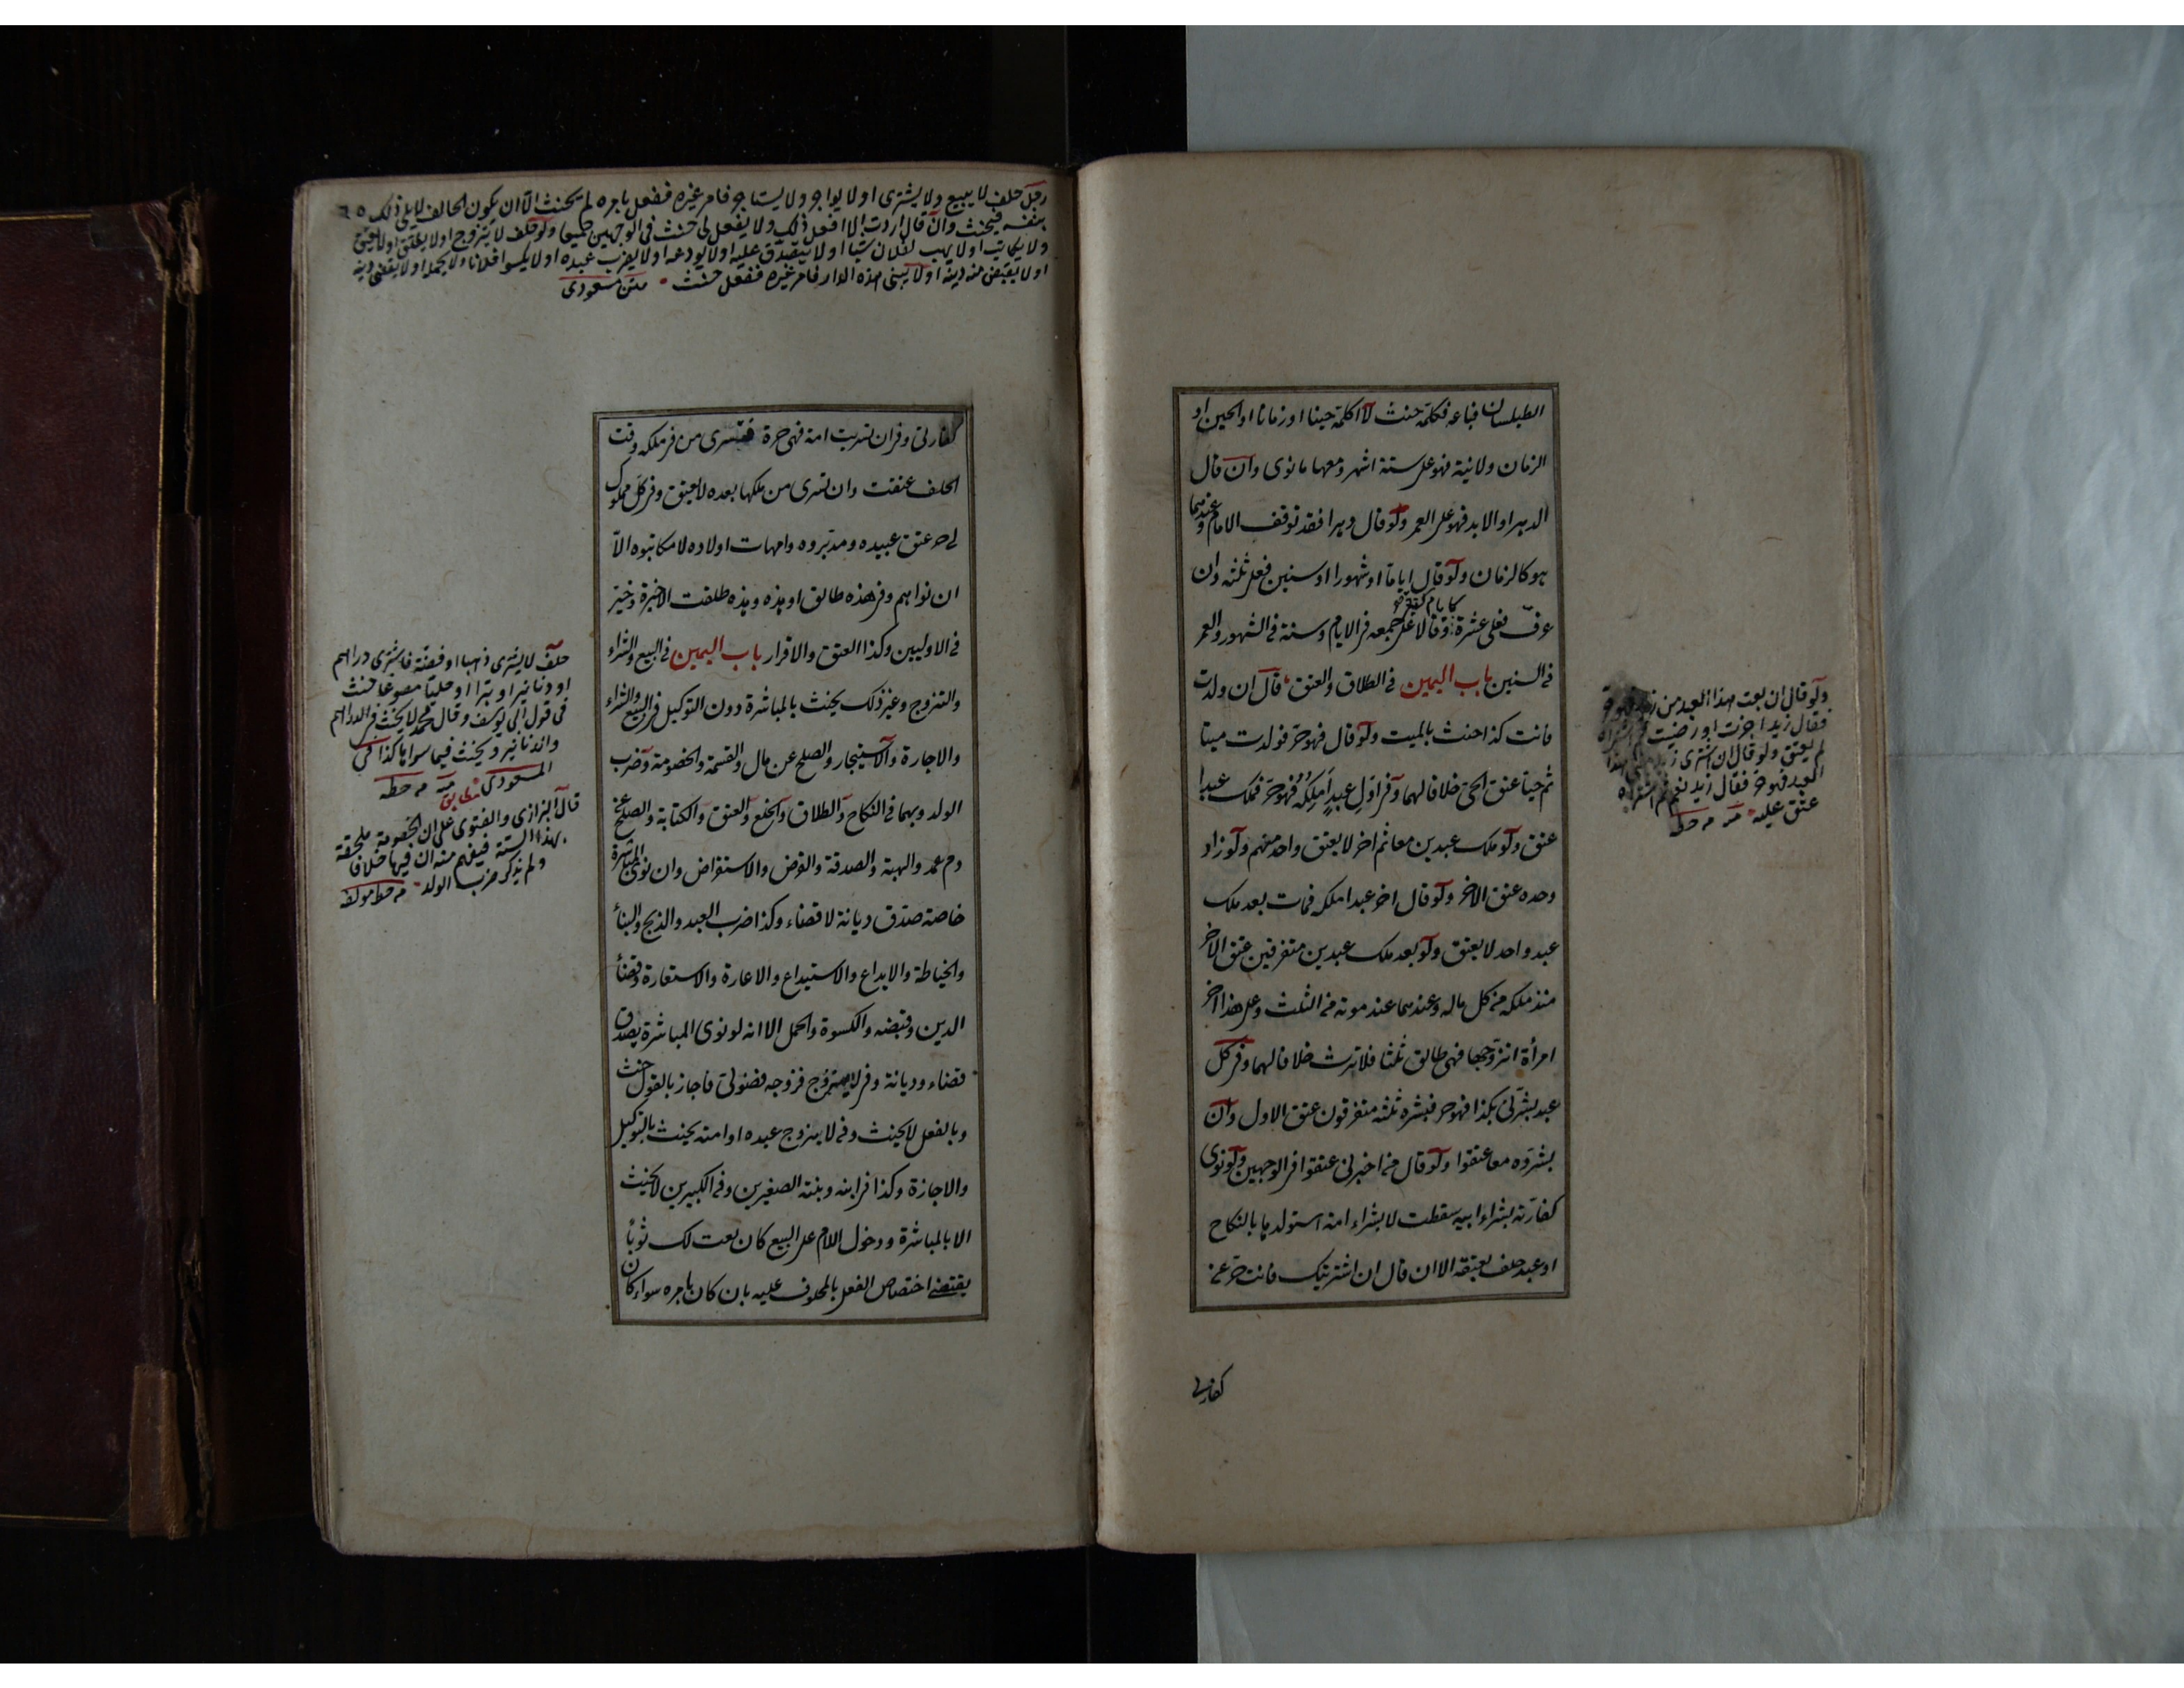 الطيلسان فباعه فكلمه حنث لا اكلمه حينا او زمانا او الحين او
الزمان ولانية فهو على ستة اشهر ومعها ما نوى وان قال
الدهر او الابد فهو على العمر ولو قال دهرا فقد توقف الامام وعندهما
هو كالزمان ولو قال اياما او شهورا او سنين فعلى ثلثه وان
عرف فعلى عشرة وقالا على جمعه فى الايام وسنة فى الشهور والعمر
فى السنين باب اليمين فى الطلاق والعتق قال ان ولدت
فانت كذا حنث بالميت ولو قال فهو حر فولدت ميتا
ثم حيا عتق الحى خلافا لهما وفى اول عبد املكه فهو حر فملك عبدا
عتق ولو ملك عبدين معا ثم اخر لا يعتق واحد منهم ولو زاد
وحده عتق الاخر ولو قال اخر عبد املكه فمات بعد ملك
عبد واحد لا يعتق ولو بعد ملك عبدين متفرقين عتق الاخر
منذ ملكه من كل ماله وعندهما عند موته من الثلث وعلى هذا اخر
امرأة اتزوجها فهى طالق ثلثا فلا ترث خلافا لهما وفى كل
عبد بشرنى بكذا فهو حر فبشره ثلثه متفرقون عتق الاول وان
بشروه معا عتقوا ولو قال من اخبرنى عتقوا فى الوجهين ولو نوى
كفارته بشراء ابيه سقطت لا بشراء امة استولدها بالنكاح
او عبد حلف بعتقه الا ان قال ان اشتريتك فانت حر عن
كفارتى
ولو قال ان بعت هذا العبد من زيد فهو حر
فقال زيد اجزت او رضيت
لم يعتق ولو قال ان اشترى زيد هذا
العبد فهو حر فقال زيد نعم ثم اشتراه
عتق عليه
رجل حلف لا يبيع ولا يشترى او لا يواجر ولا يستاجر فامر غيره ففعل بامره لم يحنث الا ان يكون الحالف لا يلى ذلك
بنفسه فيحنث وان قال اردت الا افعل ذلك ولا يفعل لى حنث فى الوجهين جميعا ولو حلف لا يتزوج او لا يطلق او لا يعتق
ولا يكاتب او لا يهب لفلان شيا او لا يتصدق عليه او لا يودعه او لا يضرب عبده او لا يكسو فلانا ولا يحمله او لا يقضى دينه
او لا يقبض منه دينه او لا يبنى هذه الدار فامر غيره ففعل حنث متن مسعودى
كفارتى وفى ان تسريت امة فهى حرة فتسرى من فى ملكه وقت
الحلف عتقت وان تسرى من ملكها بعده لا يعتق وفى كل مملوك
لى حر عتق عبيده ومدبروه وامهات اولاده لا مكاتبوه الا
ان نواهم وفى هذه طالق او هذه وهذه طلقت الاخيرة وخير
فى الاوليين وكذا العتق والاقرار باب اليمين فى البيع والشراء
والتزوج وغير ذلك يحنث بالمباشرة دون التوكيل فى البيع والشراء
والاجارة والاستيجار والصلح عن مال والقسمة والخصومة وضرب
الولد وبهما فى النكاح والطلاق والخلع والعتق والكتابة والصلح عن
دم عمد والهبة والصدقة والقرض والاستقراض وان نوى المباشرة
خاصة صدق ديانة لا قضاء وكذا ضرب العبد والذبح والبناء
والخياطة والايداع والاستيداع والاعارة والاستعارة وقضاء
الدين وقبضه والكسوة والحمل الا انه لو نوى المباشرة يصدق
قضاء وديانة وفى لا يتزوج فزوجه فضولى فاجاز بالقول حنث
وبالفعل لا يحنث وفى لا يزوج عبده او امته يحنث بالتوكيل
والاجازة وكذا فى ابنه وبنته الصغيرين وفى الكبيرين لا يحنث
الا بالمباشرة ودخول اللام على البيع كان بعت لك ثوبا
يقتضى اختصاص الفعل بالمحلوف عليه بان كان بامره سواء كان
حلف لا يشترى ذهبا او فضة فاشترى دراهم
او دنانير او تبرا او حليا مصوغا حنث
فى قول ابى يوسف وقال محمد لا يحنث فى الدراهم
والدنانير ويحنث فيما سواها كذا فى
المسعودى
قال البزازى والفتوى على ان الخصومة ملحقة
بهذا الستة فيفهم منه ان فيها خلافا
ولم يذكر ضرب الولد من خط مولفه